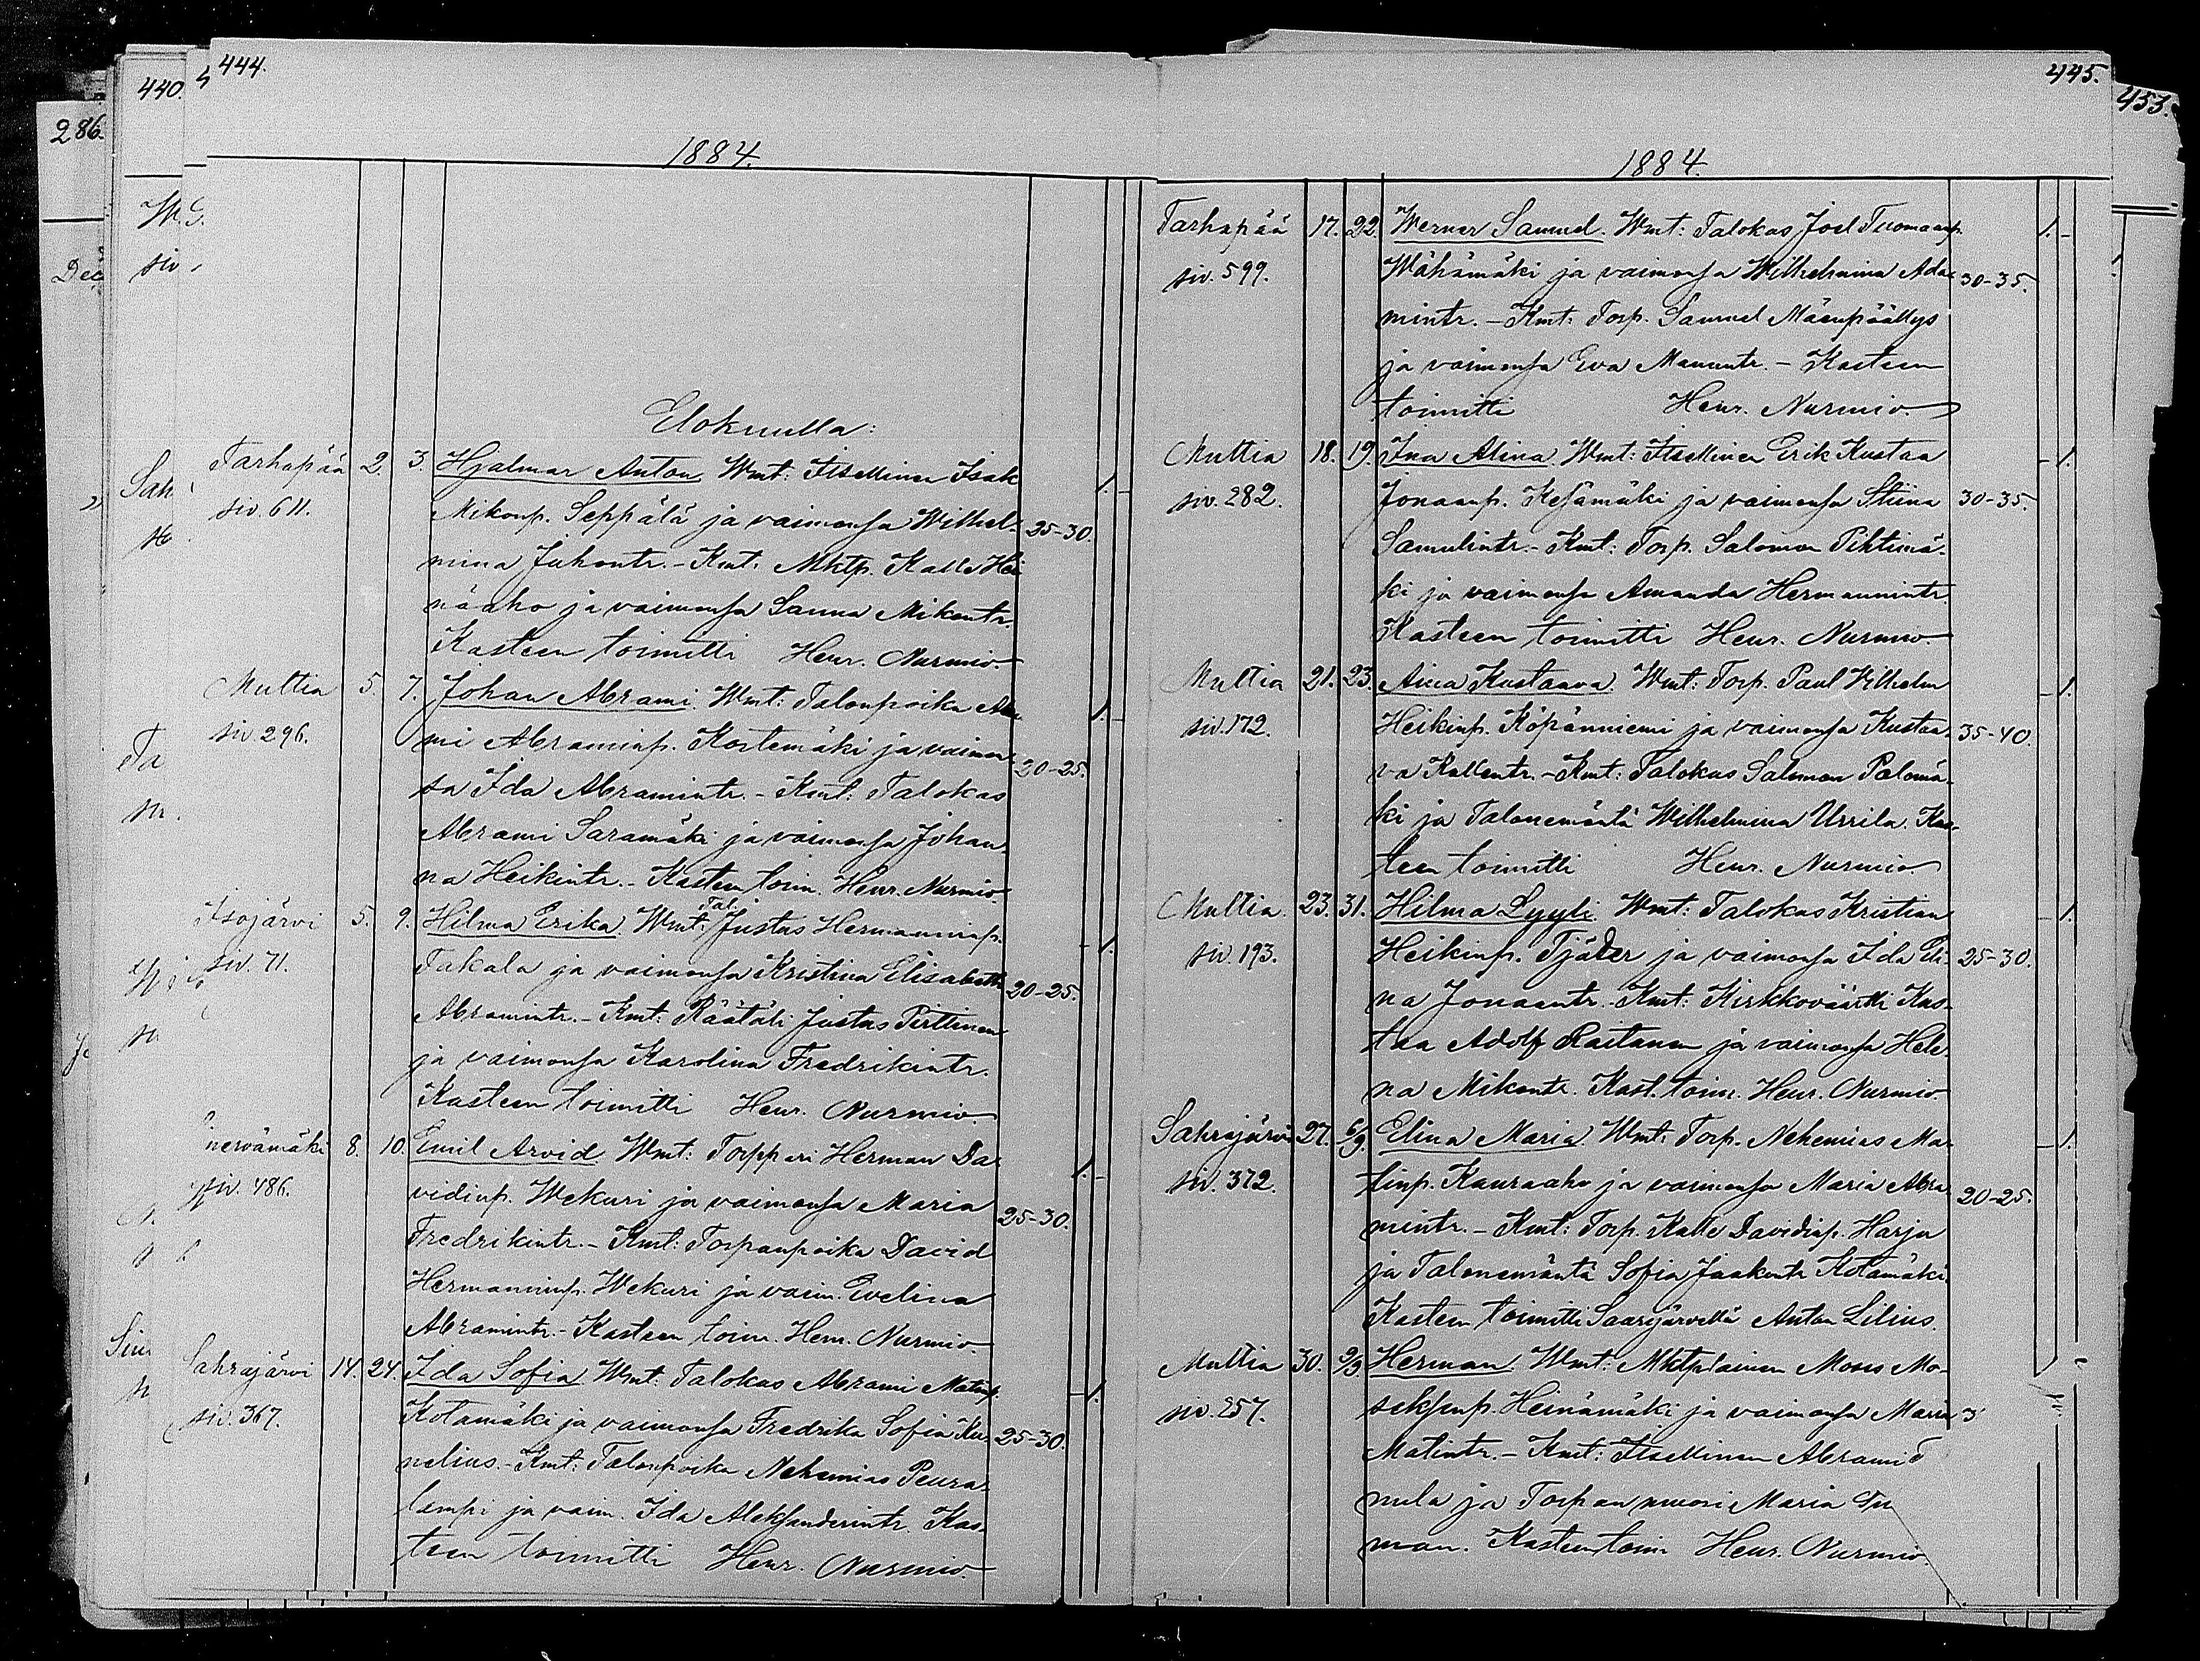 444.
440.
286.
1884.
Elokuulla:
Tarhapää 2. 3. Hjalmar Anton. Wmt: Itsellinen Isak
siv. 611. Mikonp. Seppälä ja vaimonsa Wilhel- 25-30. 1.
mina Juhontr. - Kmt: Mktp. Kalle Hei
näaho ja vaimonsa Sanna Mikontr.
Kasteen toimitti Henr. Nurmio.
Multia 5. 7. Johan Abrami. Wmt: Talonpoika Abra 1.
siv. 296. mi Abraminp. Kostemäki ja vaimon- 20-25.
sa Ida Abramintr. - Kmt: Talokas
Abrami Saramäki ja vaimonsa Johan-
na Heikintr. - Kasteen toim. Henr. Nurmio.
Isojärvi 5. 9. Hilma Erika. Wmt: Tal. Justus Hermanninp. 1.
siv. 71. Takala ja vaimonsa Kristina Elisabeth 20-25.
Abramintr. - Kmt: Räätäli Justus Pirttinen
ja vaimonsa Karolina Fredrikintr.
Kasteen toimitti Henr. Nurmio.
nervämäki 8. 10. Emil Arvid. Wmt: Torppari Herman Da- 1.
siv. 486. vidinp. Wekuri ja vaimonsa Maria 25-30.
Fredrikintr. - Kmt: Torpanpoika David
Hermanninp. Wekuri ja vaim. Evelina
Abramintr. - Kasteen toim. Henr. Nurmio.
Sahrajärvi 14. 24. Ida Sofia. Wmt: Talokas Abrami Matinp. 1.
siv. 367. Kotamäki ja vaimonsa Fredrika Sofia Ku- 25-30.
nelius. - Kmt: Talonpoika Nehemias Peura-
lampi ja vaim. Ida Aleksanderintr. Kas-
teen toimitti Henr. Nurmio.
445.
453.
1884.
Tarhapää 17. 22. Werner Samuel. Wmt: Talokas Joel Tuomaanp. 1.
siv. 599. Wähämäki ja vaimonsa Wilhelmina Ada- 30-35.
mintr. - Kmt: Torp. Samuel Mäenpäällys
ja vaimonsa Eva Manuntr. - Kasteen
toimitti Henr. Nurmio.
Multia 18. 19. Ina Alina. Wmt: Itsellinen Erik Kustaa 1.
siv. 282. Jonaanp. Kesämäki ja vaimonsa Stiina 30-35.
Samulintr. - Kmt: Torp. Salomon Pihtimä-
ki ja vaimonsa Amanda Hermannintr.
Kasteen toimitti Henr. Nurmio
Multia 21. 23. Aina Kustaava. Wmt: Torp. Paul Vilhelm 1.
siv. 172. Heikinp. Köpänniemi ja vaimonsa Kustaa- 35-40.
va Kallentr. - Kmt: Talokas Salomon Palomä-
ki ja Talonemäntä Wilhelmina Urrila. Kas-
teen toimitti Henr. Nurmio.
Multia 23. 31. Hilma Lyyli. Wmt: Talokas Kristian 1.
siv. 193. Heikinp. Tjäder ja vaimonsa Ida Eli- 25-30.
na Jonaantr. - Kmt: Kirkkoväärtti Kus-
taa Adolf Rastanen ja vaimonsa Hele-
na Mikontr. Kast. toim. Henr. Nurmio.
Sahrajärvi 27. 6/9. Elina Maria. Wmt: Torp. Nehemias Mar- 1.
siv. 372. tinp. Kauraaho ja vaimonsa Maria Abra- 20-25.
mintr. - Kmt: Torp. Kalle Davidinp. Harju
ja Talonemäntä Sofia Jaakontr. Kotamäki.
Kasteen toimitti Saarijärvellä Anton Lilius.
Multia 30. 9/9. Herman. Wmt: Mktplainen Moses Mo-
siv. 257. seksenp. Heinämäki ja vaimonsa Maria 3
Matintr. - Kmt: Itsellinen Abrami
nula ja Torpan muori Maria
man. Kasteen toim Henr. Nurmio